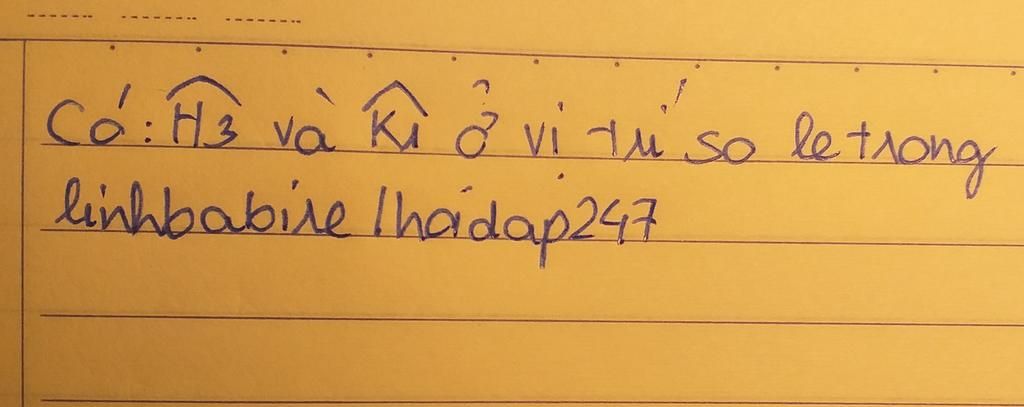 Có: Ĥ3 và K̂1 ở vị trí so le trong
linhbabire/hoidap247